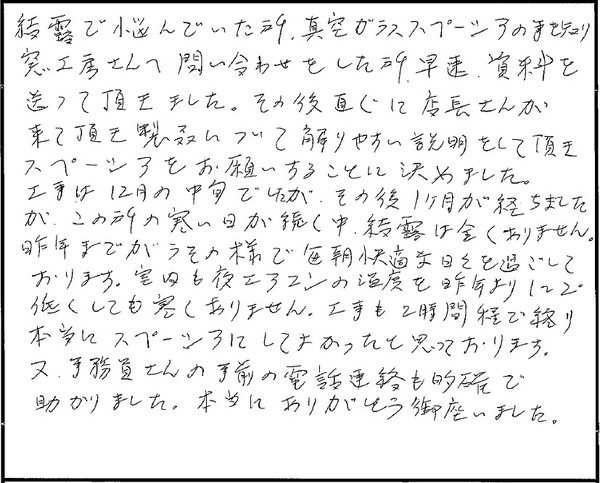 結露で悩んでいた所、真空ガラススペーシアの事を知り
窓工房さんへ問い合わせをした所、早速、資料を
送って頂きました。その後直ぐに店長さんが
来て頂き製品について解りやすい説明をして頂き
スペーシアをお願いすることに決めました。
工事は12月の中旬でしたが、その後1ヶ月が経ちました
が、この所の寒い日が続く中、結露は全くありません。
昨年までがうその様で毎朝快適な日々を過ごして
おります。室内も夜エアコンの温度を昨年より1~2°
低くしても寒くありません。工事も2時間程で終り
本当にスペーシアにしてよかったと思っております。
又、事務員さんの事前の電話連絡も的確で
助かりました。本当にありがとう御座いました。